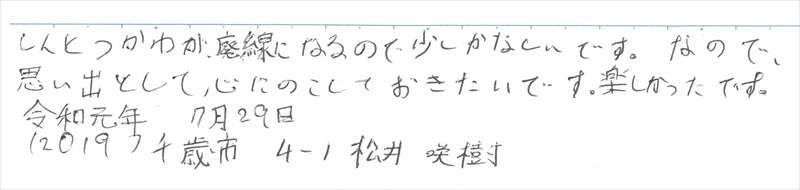 しんとつかわが、廃線になるので少しかなしいです。なので、
思い出として、心にのこしておきたいです。楽しかったです。
令和元年 7月29日
(2019) 千歳市 4-1 松井 咲樹